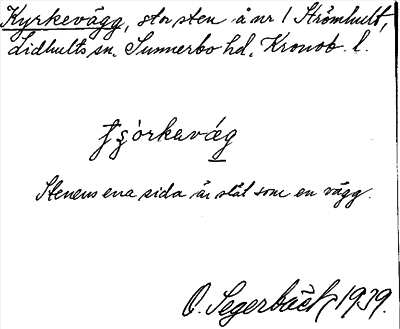 Kyrkevägg, stor sten å nr 1 Strömhult,
Lidhults sn. Sunnerbo hd. Kronob. l.
Stenens ena sida är slät som en vägg.
O. Segerbäck 1939.